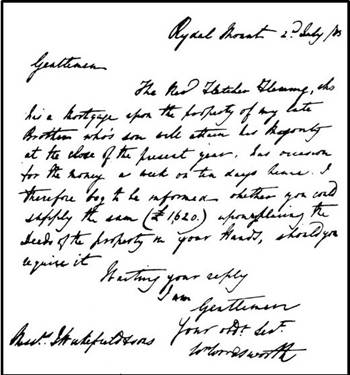 Rydal Mount 2d July /
Gentlemen
The Revd Fletcher Fleming, who
has a Mortgage upon the property of my late
Brother who's son will attain his Majority
at the close of the present year, has occasion
for the money a week or ten days hence. I
therefore beg to be informed whether you could
supply the same (£1,620.) upon placing the
Deeds of the property in your Hands, should you
require it
Waiting your reply
I am
Gentlemen
Your obdt Sevt.
Wm Wordsworth
Messrs. J Wakefield & Sons